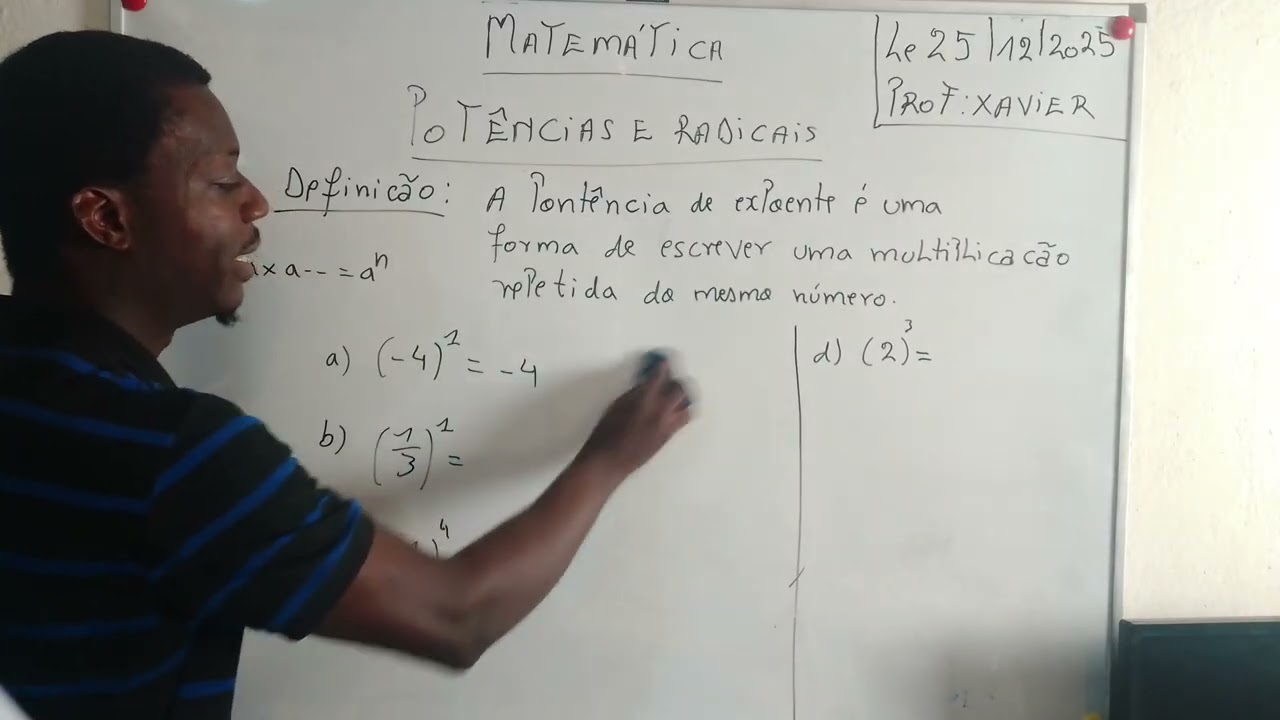 MATEMÁTICA
Le 25/12/2025
PROF: XAVIER
POTÊNCIAS E RADICAIS
Definicão: A Pontência de expoente é uma
forma de escrever uma multiplicacão
repetida do mesmo número.
x a-- = aⁿ
a) (-4)¹ = -4
b) (1/3)¹ =
)⁴
d) (2)³ =